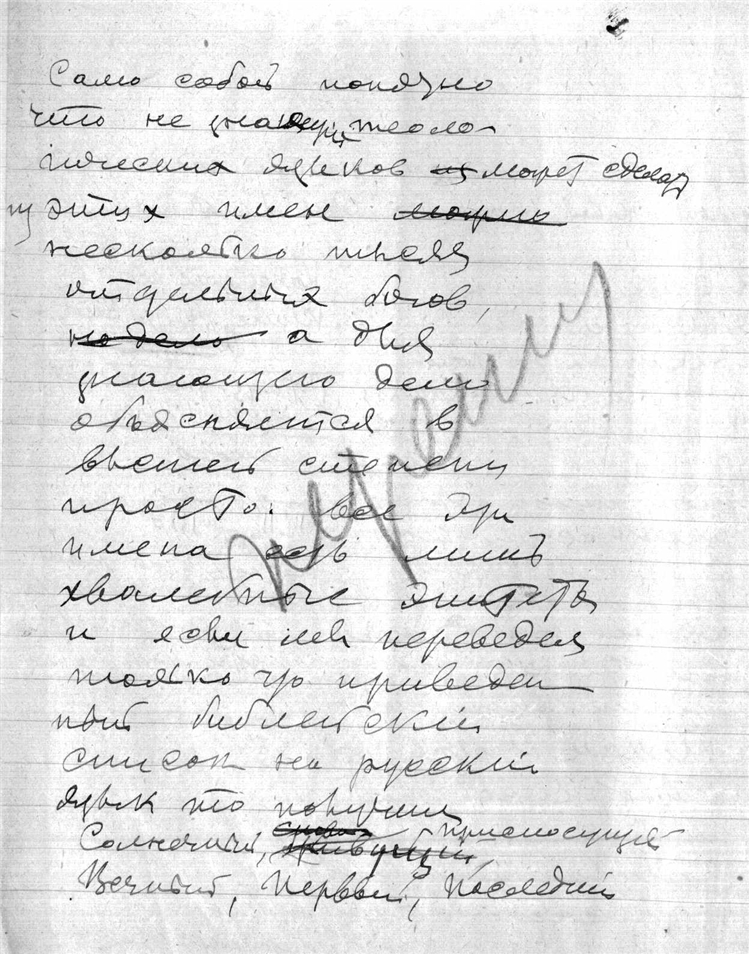 Само собой понятно
что не знающий теоло-
гических языков может сделать
из этих имен можно
несколько тысяч
отдельных богов,
но дело а для
знающего дело
объясняется в
высшей степени
просто: все эти
имена есть лишь
хвалебные эпитеты
и если мы переведем
только что приведен
ный библейский
список на русский
язык то получим
Солнечный, снова живущий, присносущий
Вечный, Первый, Последний